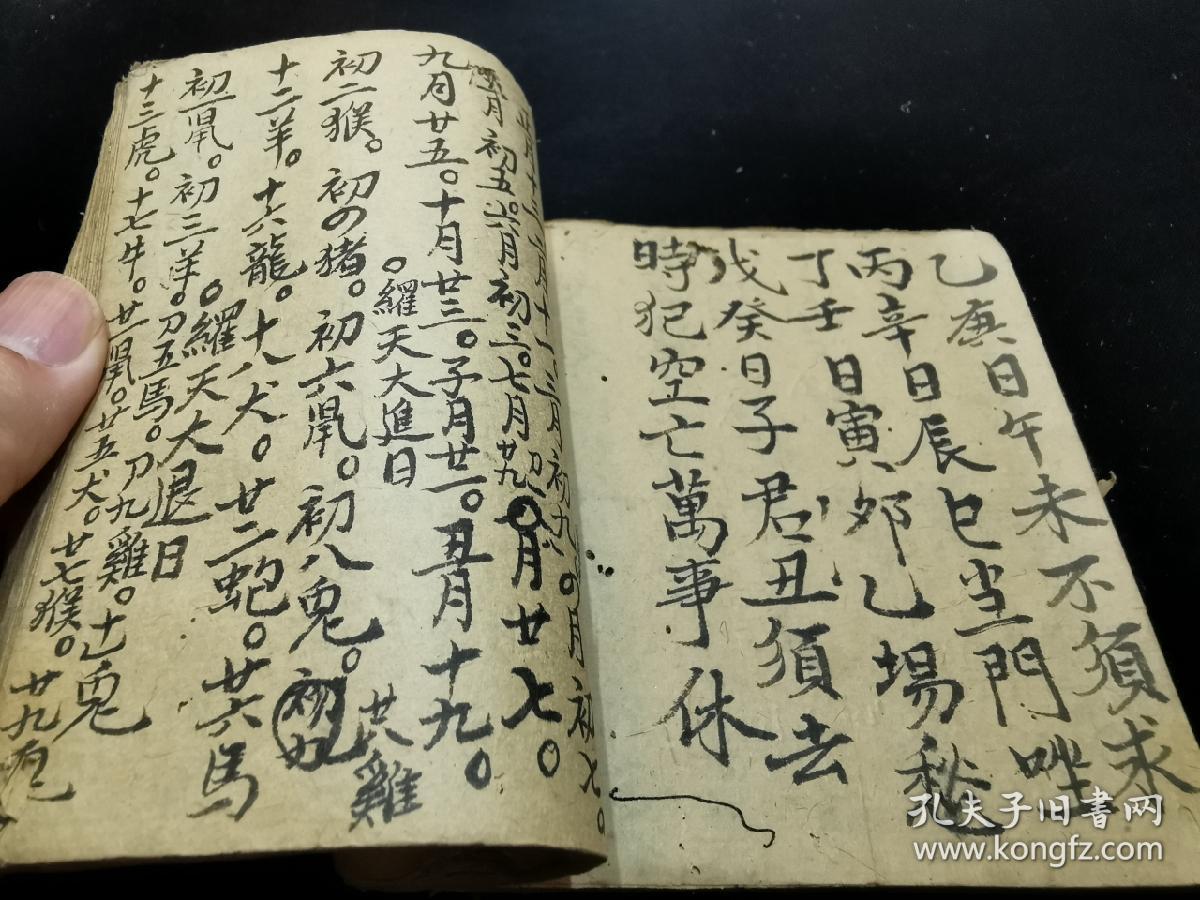 乙庚日午未不須求
丙辛日辰巳当門唑
丁壬日寅卯乙場秘
戊癸日子君丑須去
時犯空亡萬事休
月初五。六月初三。七月廿九。月廿七。
九月廿五。十月廿三。子月廿一。丑月十九。
。羅天大進日
初二猴。初四猪。初六鼠。初八兔。
十二羊。十六龍。十八犬。廿二蛇。廿六馬
廿雞
。羅天大退日
初一鼠。初三羊。初五馬。初九雞。十一兔
十三虎。十七牛。廿一鼠。廿五犬。廿七猴。廿九
孔夫子旧书网
www.kongfz.com